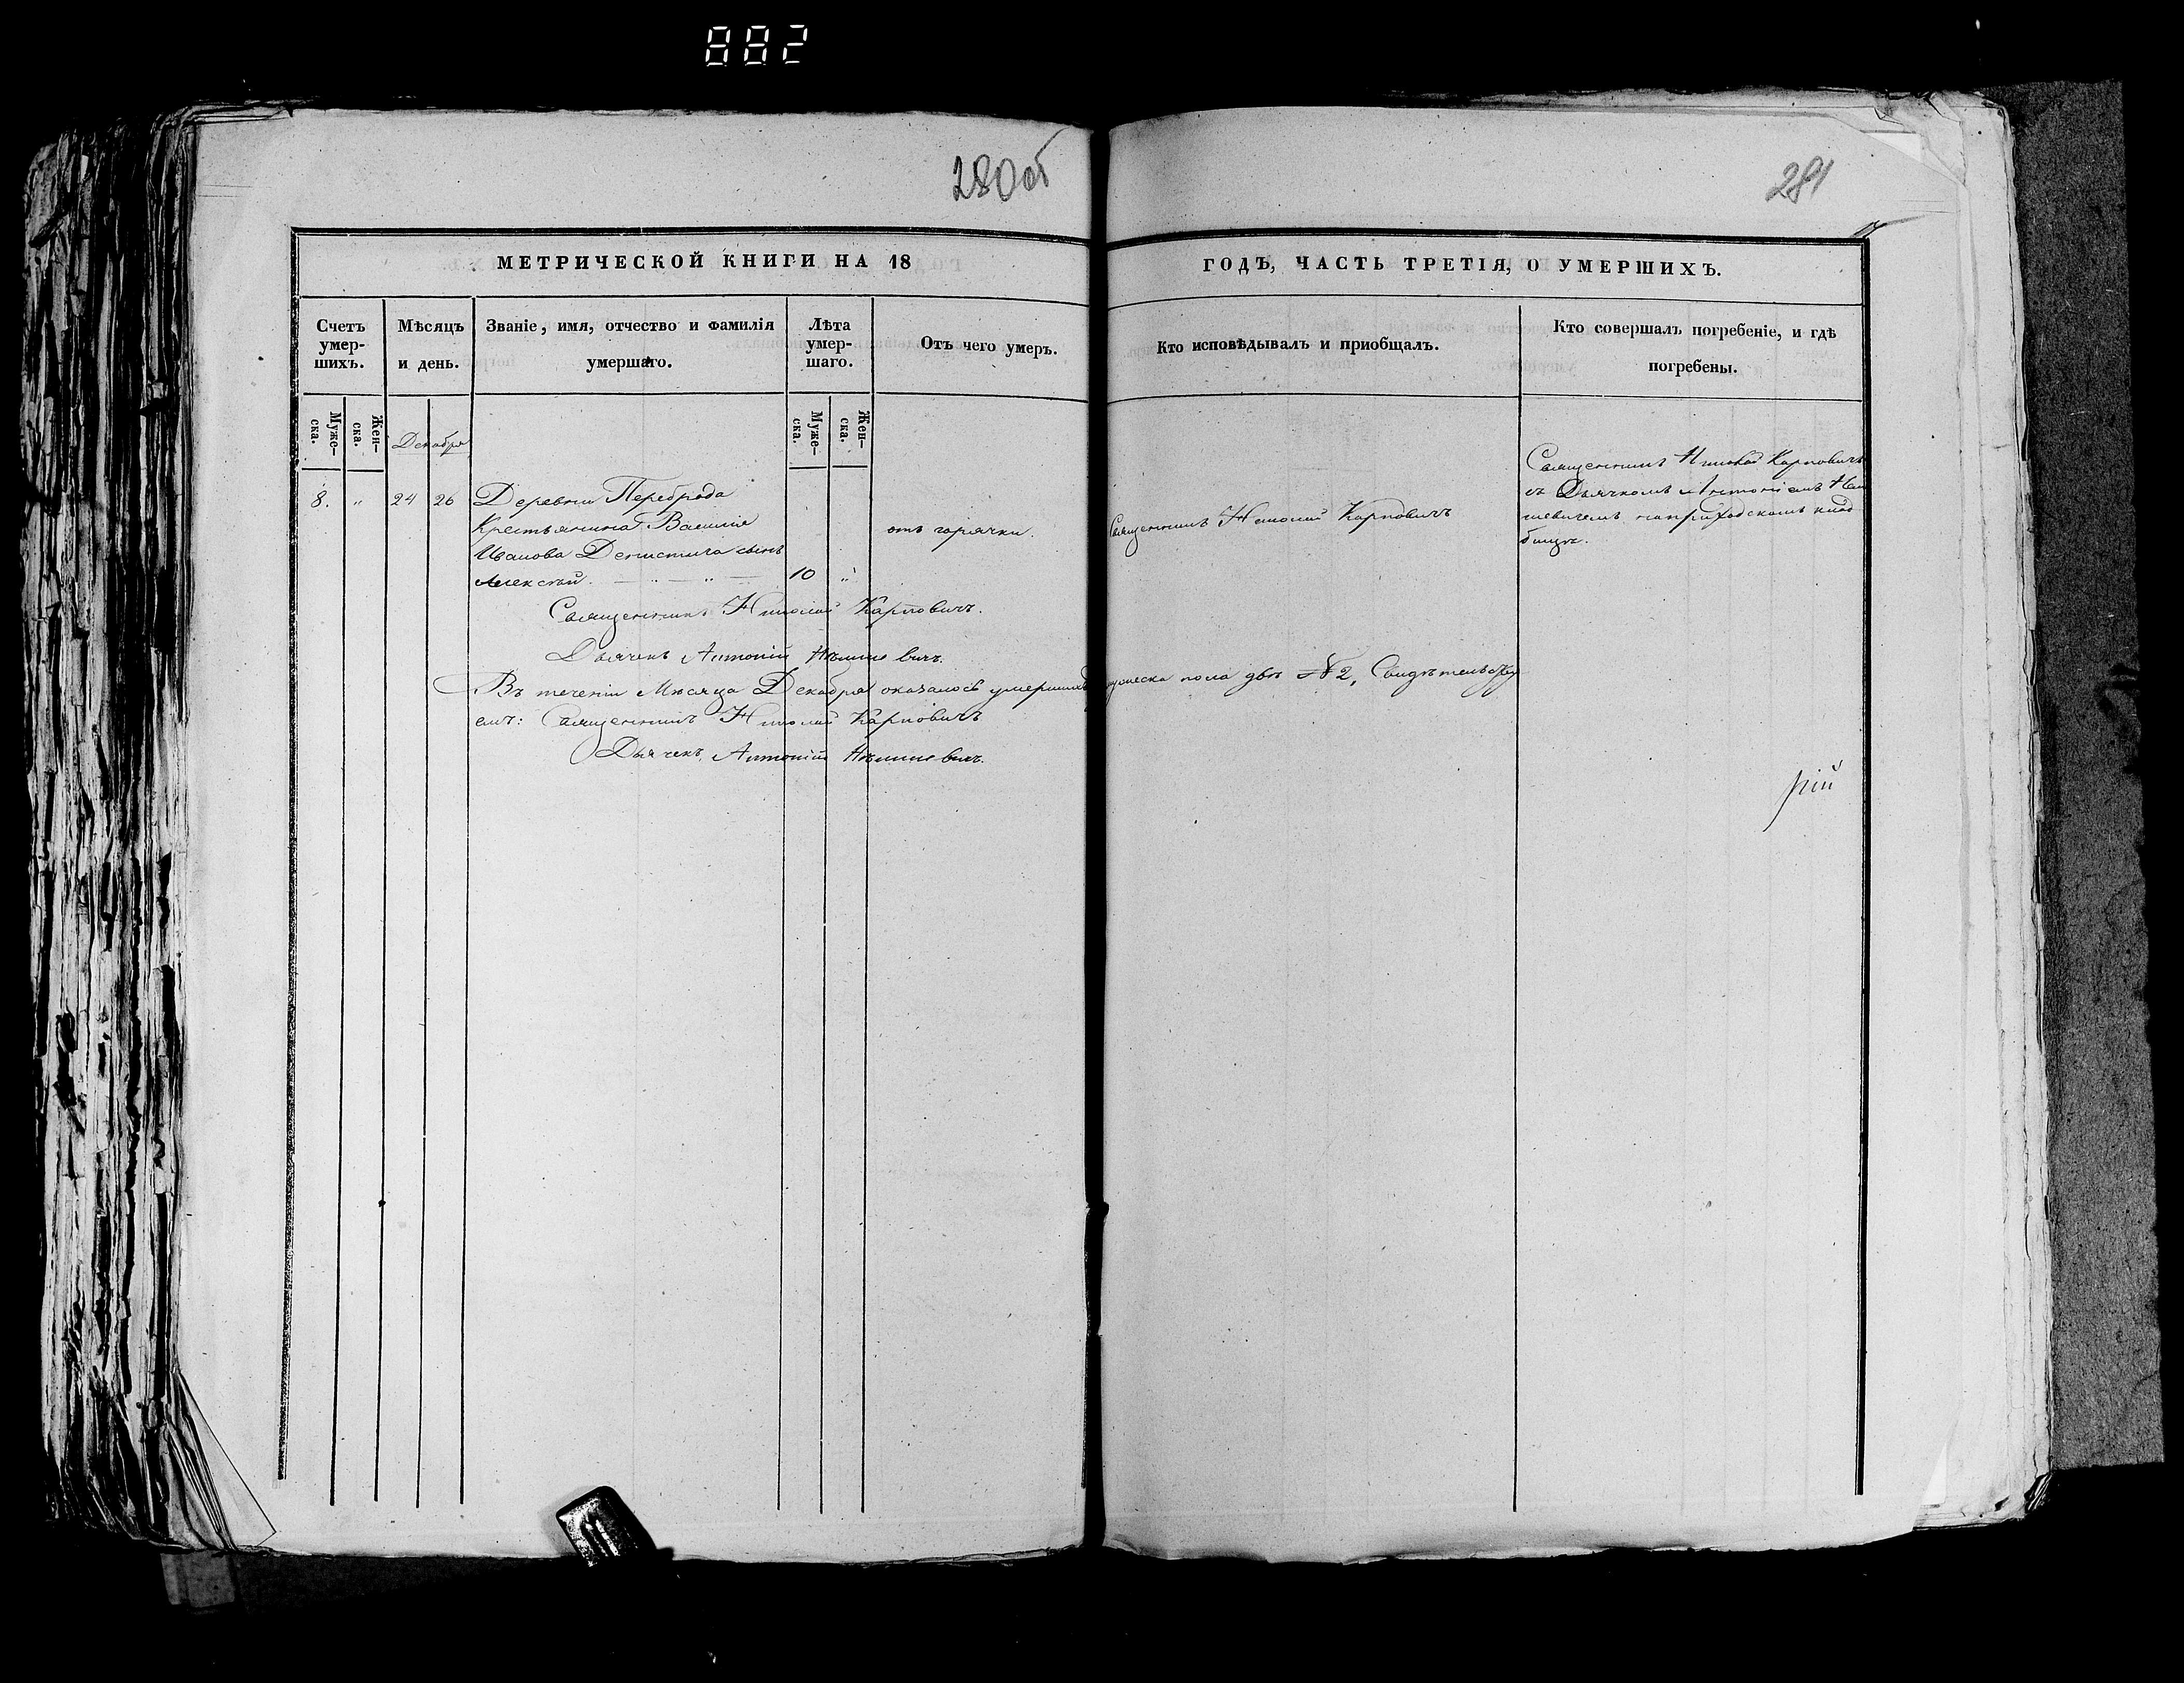 882
280об
281
МЕТРИЧЕСКОЙ КНИГИ НА 18
ГОДЪ, ЧАСТЬ ТРЕТІЯ, О УМЕРШИХЪ.
Счетъ умер-шихъ.
Мѣсяцъ и день.
Званіе, имя, отчество и фамилія умершаго.
Лѣта умер-шаго.
Отъ чего умеръ.
Кто исповѣдывалъ и приобщалъ.
Кто совершалъ погребеніе, и гдѣ погребены.
Муже-ска.
Жен-ска.
Декабря
Муже-ска.
Жен-ска.
8. „ 24 26
Деревни Переброда
Крестьянина Василія
Иванова Денистича сынъ
Алексѣй. — „ — „ — 10 „
отъ горячки.
Священникъ Николай Карповичъ
Священникъ Николай Карповичъ
съ Дьячкомъ Антоніемъ
на приходскомъ клад
бищѣ.
Священникъ Николай Карповичъ.
Дьячекъ Антоній
Въ теченіи Мѣсяца Декабря оказалось умершихъ мужеска пола два №2, Свидѣтельству
емъ: Священникъ Николай Карповичъ
Дьячекъ Антоній
рій